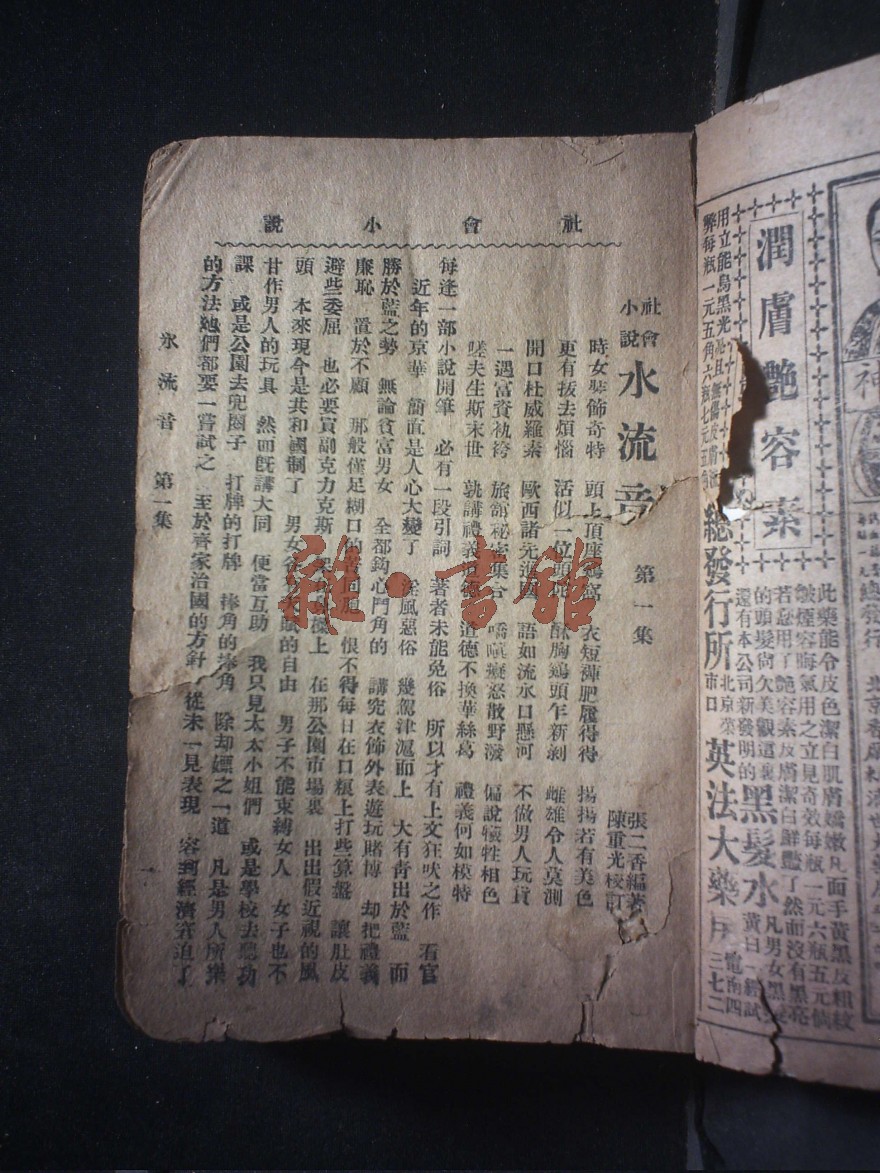 社會小說
社會
小說
水流音
第一集
張二香編著
陳重光校訂
時女裝飾奇特 頭上頂座鷄窩 衣短褌肥履得得 揚揚若有美色
更有拔去煩惱 活似一位頭陀 酥胸鷄頭乍新剝 雌雄令人莫測
開口杜威羅素 歐西諸先進國 語如流水口懸河 不做男人玩貨
一遇富賓紈袴 旅館秘密集合 嬌嗔癡怒散野潑 偏說犧牲相色
嗟夫生斯末世 孰講禮義道德 道德不換華絲葛 禮義何如模特
每逢一部小說開筆 必有一段引詞 著者未能免俗 所以才有上文狂吠之作 看官
近年的京華 簡直是人心大變了 淫風惡俗 幾駕津滬而上 大有靑出於藍 而
勝於藍之勢 無論貧富男女 全都鈎心鬥角的 講究衣飾外表遊玩賭博 却把禮義
廉恥 置於不顧 那般僅足糊口的 恨不得每日在口糧上打些算盤 讓肚皮
避些委屈 也必要買副克力克斯 在那公園市場裏 出出假近視的風
頭 本來現今是共和國制了 男女各有天賦的自由 男子不能束縛女人 女子也不
甘作男人的玩具 然而旣講大同 便當互助 我只見太太小姐們 或是學校去聽功
課 或是公園去兜圈子 打牌的打牌 捧角的捧角 除却嫖之一道 凡是男人所樂
的方法她們都要一嘗試之 至於齊家治國的方針 從未一見表現 容到經濟窘迫了
水流音 第一集
雅·書館
潤膚艷容素
此藥能令皮色潔白肌膚嬌嫩凡面手黃黑皮粗紋
皺煙容晦氣用之立見奇效每瓶一元六瓶五元倘
若急用了艷容素皮膚潔白鮮艷了然而沒有黑亮
的頭髮尙欠美觀這裏
還有本公司新發明的
黑髮水
凡男女黑
黃白一經試
用立能烏黑光
弊每瓶一元五角六瓶七元
總發行所
北京菜
市口
英法大藥房
電南四
三七二
神
總發行
北京